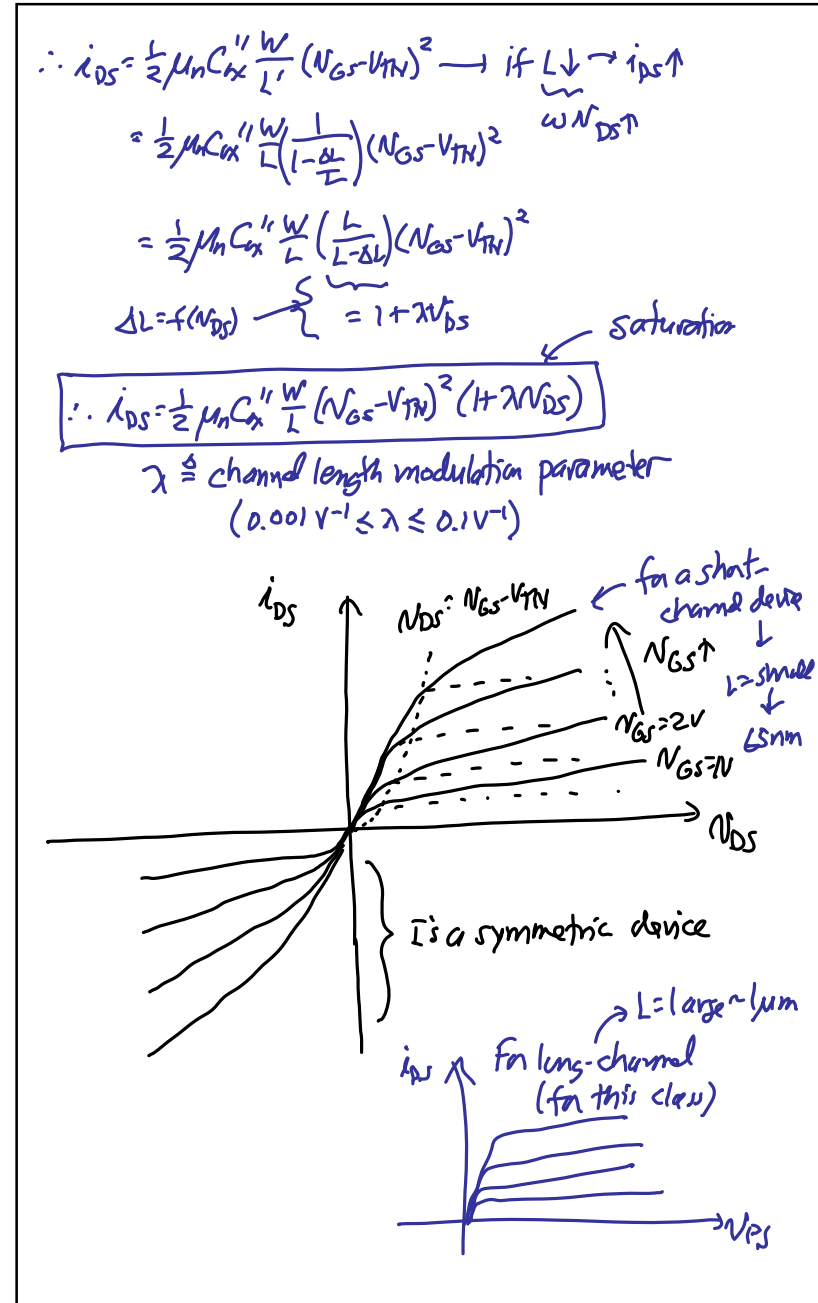 ∴ i_DS = 1/2 μ_n C_ox'' W/L' (v_GS - V_TN)² → if L↓ → i_DS↑
w v_DS↑
= 1/2 μ_n C_ox'' W/L (1/(1 - ΔL/L)) (v_GS - V_TN)²
= 1/2 μ_n C_ox'' W/L (L/(L-ΔL)) (v_GS - V_TN)²
ΔL = f(v_DS) → = 1 + λv_DS
saturation
∴ i_DS = 1/2 μ_n C_ox'' W/L (v_GS - V_TN)² (1+λv_DS)
λ ≜ channel length modulation parameter
(0.001 V⁻¹ ≤ λ ≤ 0.1 V⁻¹)
i_DS
v_DS = v_GS - V_TN
for a short-
channel device
↓
L=small
↓
65nm
v_GS↑
v_GS=2V
v_GS=1V
v_DS
Is a symmetric device
L=large~1μm
i_DS
For long-channel
(for this class)
v_DS